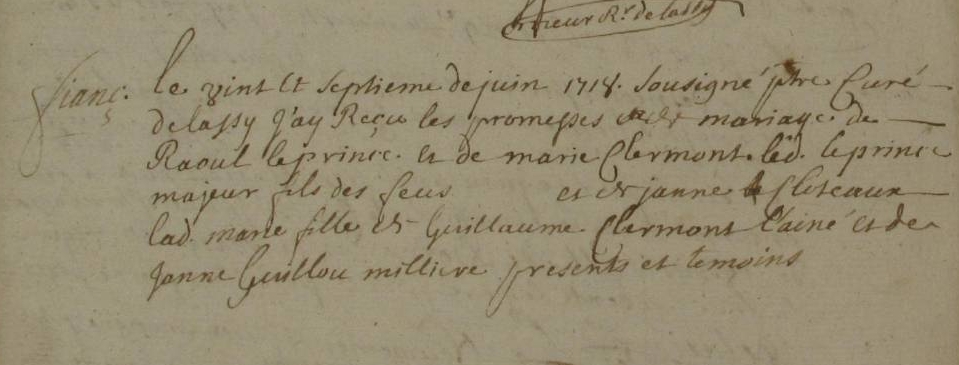 R.r delassy
fianç.
le vint et septieme de juin 1718. sousigné ptre Curé
delassy j'ay Reçu les promesses de mariage. de
Raoul leprince. et de marie Clermont. led. leprince
majeur fils des feus et de janne Cliteaux
lad. marie fille de Guillaume Clermont l'ainé et de
Janne Guillou milliere presents et temoins